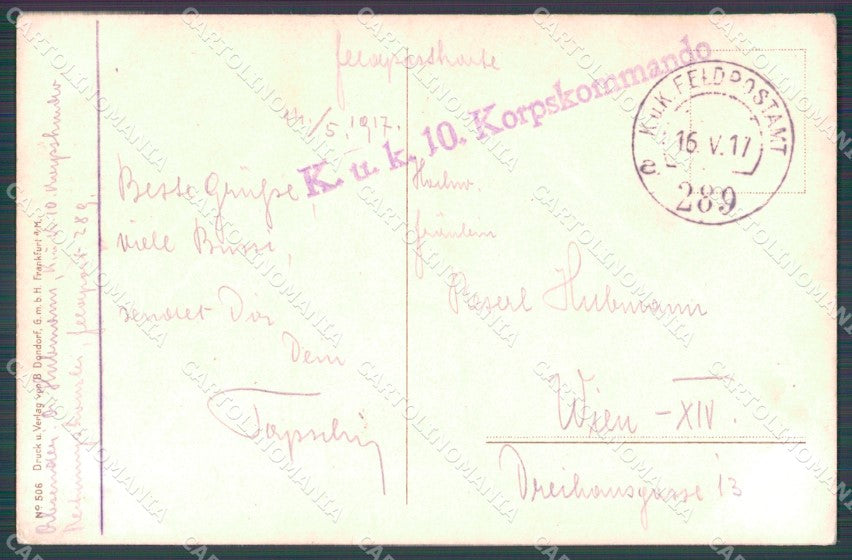 Feldpostkarte
K. u. k. 10. Korpskommando
K.u.K. FELDPOSTAMT
16.V.17
a
289
/5. 1917.
Beste Grüße,
viele Bussi,
sendet Dir
Dein
Hochw.
Fräulein
Hubmann
Wien - XIV.
Dreihausgasse 13
Absender: Hubmann, K.u.k. 10. Korpskmdo
Rechnungskanzlei, Feldpost 289.
No 506 Druck u. Verlag von B. Dondorf, G. m. b. H. Frankfurt a/M.
CARTOLINOMANIA